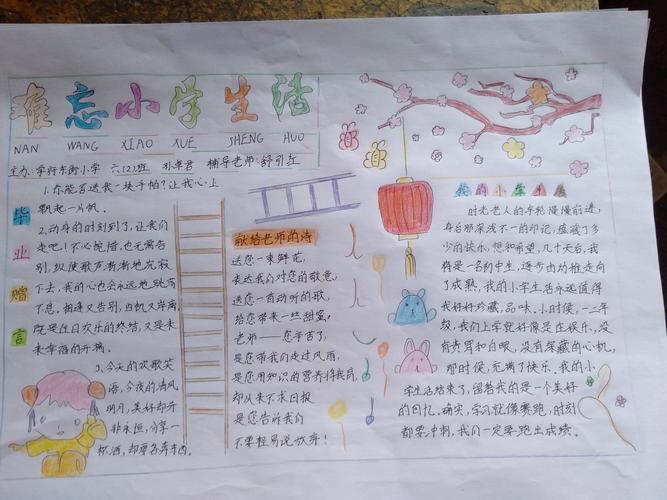 难忘小学生活
NAN WANG XIAO XUE SHENG HUO
主办:学府东街小学 六(2)班 孙卓君 辅导老师:舒引红
毕业赠言
1.你能否送我一块手帕?让我心上
飘起一片帆。
2.动身的时刻到了,让我们
走吧!不必惋惜,也无需告
别,纵使歌声渐渐地沉寂
下去,我的心也会永远地跳荡
不息,相逢又告别,归帆又离岸,
既是往日欢乐的终结,又是未
来幸福的开端。
3.今天的欢歌笑
语,今夜的清风
明月,美好却并
非永恒,分享一
杯酒,却要各奔东西。
献给老师的诗
送您一束鲜花,
表达我们对您的敬意,
送您一首动听的歌,
给您带来一丝甜蜜,
老师——您辛苦了,
是您带我们走过风雨,
是您用知识的营养将我们
却从来不求回报
是您告诉我们
不要轻易说放弃!
我的小学生活
时光老人的车轮慢慢前进,
身后那深浅不一的印记,蕴藏了多
少的快乐,想和希望,几十天后,我
将是一名初中生,进步由幼稚走向
了成熟,我的小学生活永远值得
我好好珍藏,品味。小时候,一二年
级,我们上学就好像是在娱乐,没
有责骂和白眼,没有深藏的心机,
那时候,充满了快乐。我的小
学生活结束了,留给我的是一个美好
的回忆。确实,学习就像赛跑,时刻
都要冲刺,我们一定要跑出成绩。